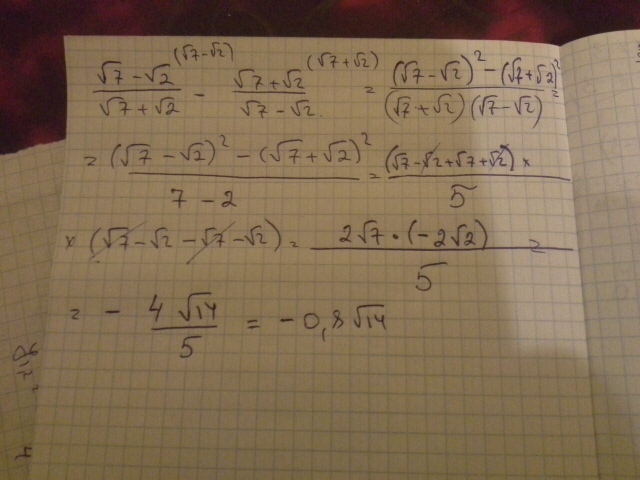 (√7-√2) / (√7+√2) ^(√7-√2) - (√7+√2) / (√7-√2) ^(√7+√2) = ((√7-√2)² - (√7+√2)²) / ((√7+√2)(√7-√2)) =
= ((√7-√2)² - (√7+√2)²) / (7-2) = (√7-√2+√7+√2) × / 5
× (√7-√2-√7-√2) = 2√7 · (-2√2) / 5 =
= - 4√14 / 5 = -0,8√14